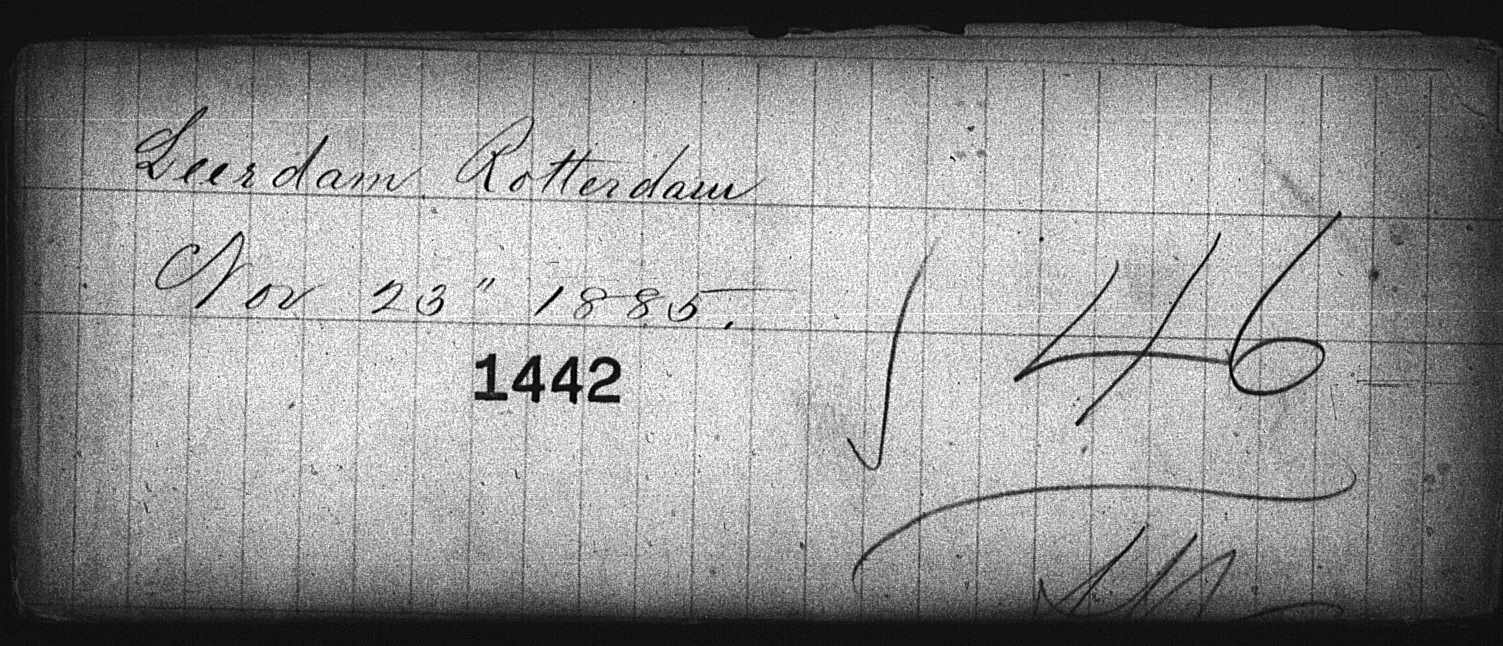 Leerdam Rotterdam
Nov 23" 1885.
46
1442